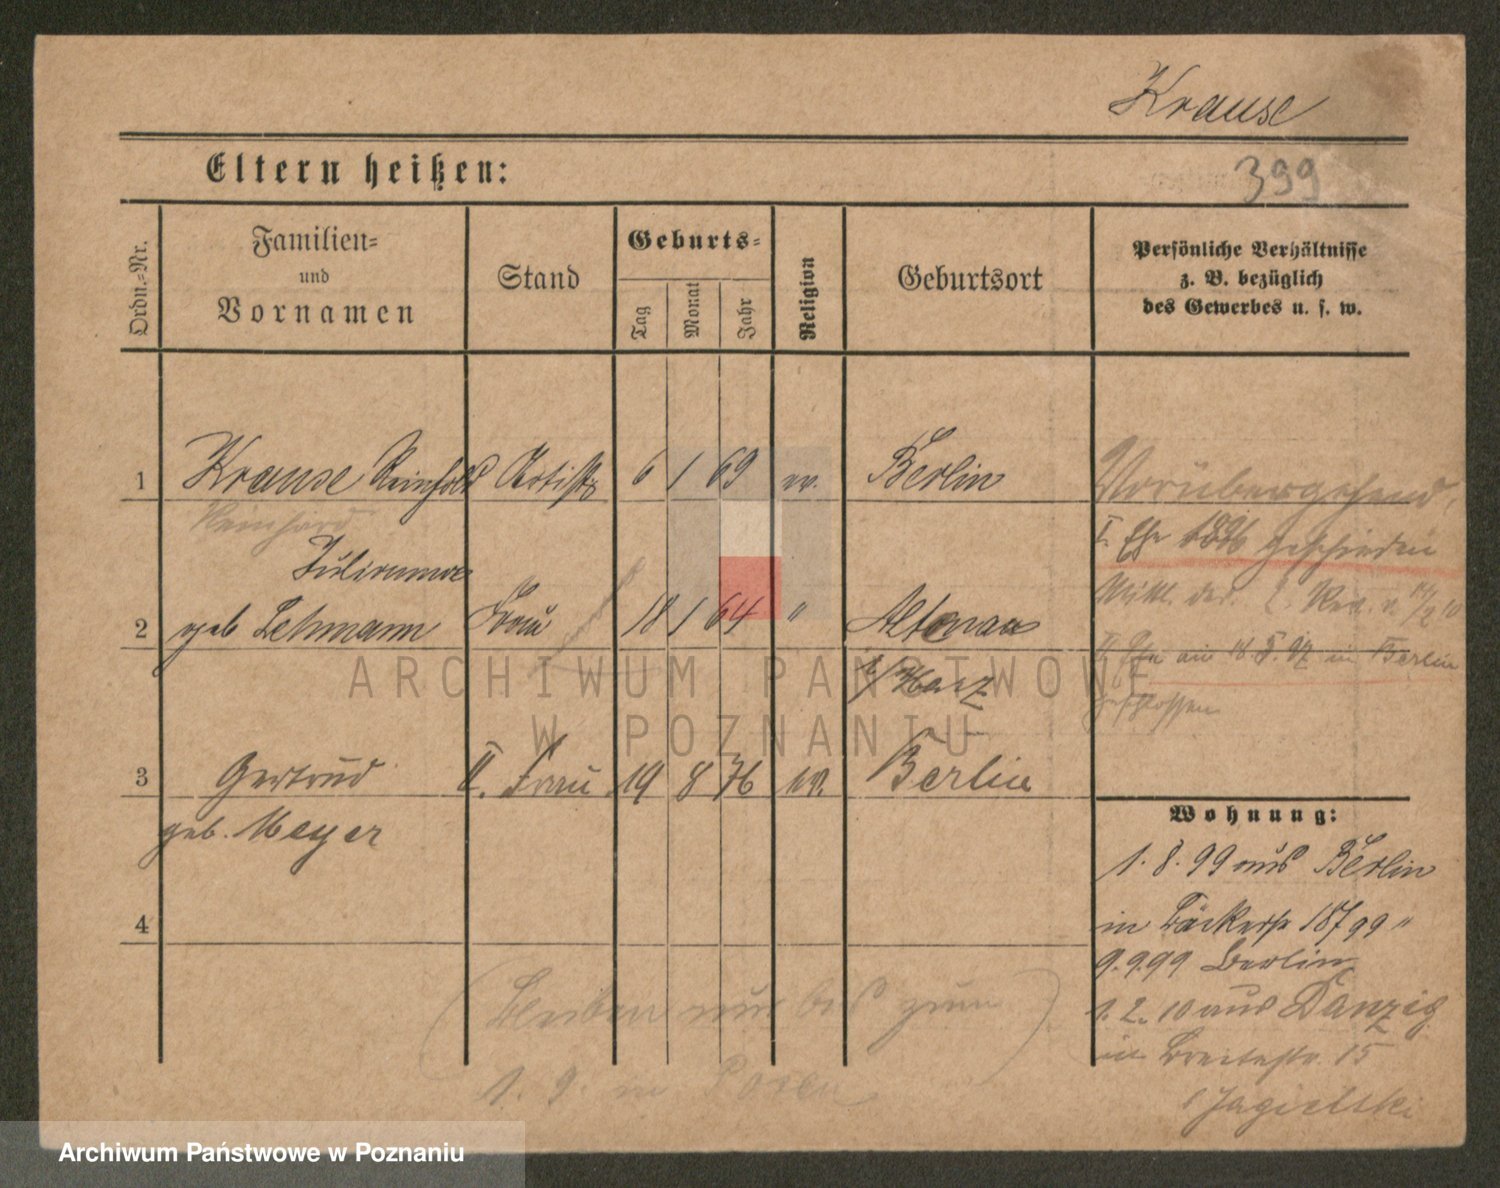 Krause
399
Eltern heißen:
Ordn.=Nr.
Familien=
und
Vornamen
Stand
Geburts=
Tag
Monat
Jahr
Religion
Geburtsort
Persönliche Verhältnisse
z. B. bezüglich
des Gewerbes u. s. w.
1 Krause Reinhold Artist 6 1 69 ev. Berlin
Vorübergehend,
Reinhard
I. Ehe 1896 geschieden
Julianne
2 geb Lehmann Frau 18 1 64 " Altenau
a/Harz
II Ehe am in Berlin
geschlossen
3 Gertrud II. Frau 19 8 76 ev. Berlin
geb. Meyer
4
Wohnung:
1. 8. 99 aus Berlin
in Bäckerstr 18 7 99 "
9. 9 99 Berlin
1. 2. 10 aus Danzig
in Breitestr. 15
Jagielski
(Bleiben nur bis zum)
1. 9. in Posen
ARCHIWUM PAŃSTWOWE
W POZNANIU
Archiwum Państwowe w Poznaniu